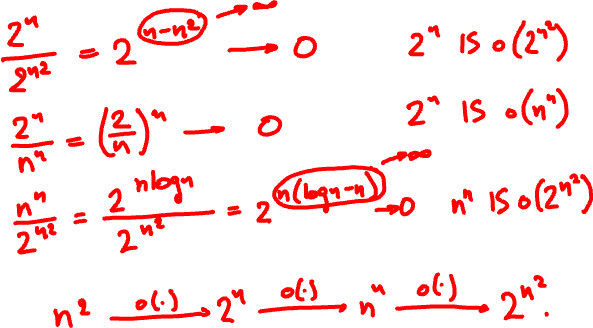 2^n / 2^{n^2} = 2^{n-n^2} → -∞ → 0 2^n IS o(2^{n^2})
2^n / n^n = (2/n)^n → 0 2^n IS o(n^n)
n^n / 2^{n^2} = 2^{n log n} / 2^{n^2} = 2^{n(log n - n)} → -∞ → 0 n^n IS o(2^{n^2})
n^2 —o(·)→ 2^n —o(·)→ n^n —o(·)→ 2^{n^2}.